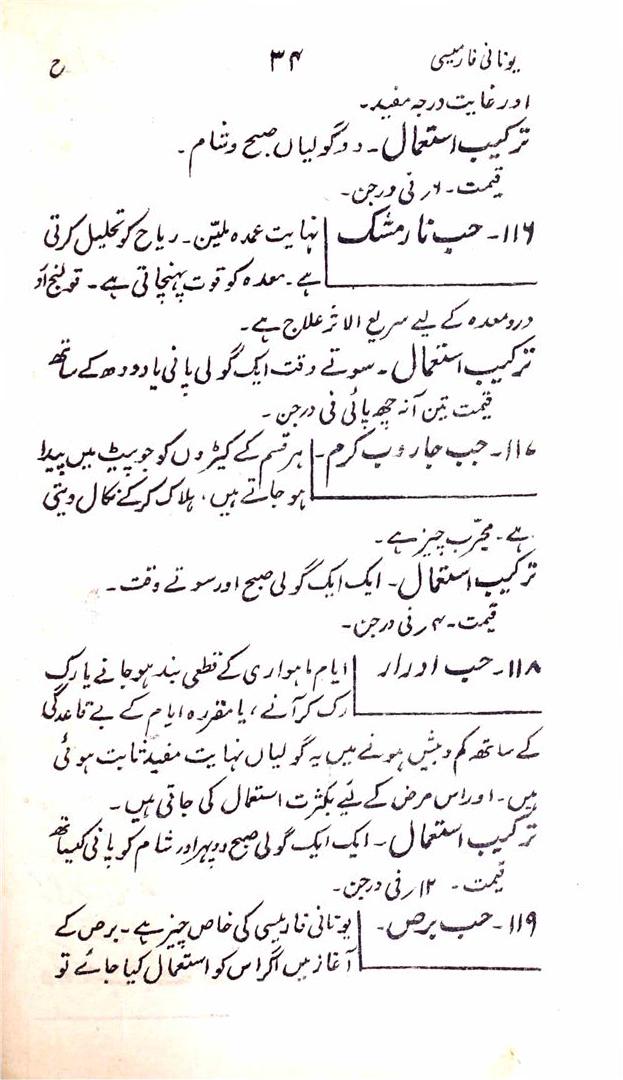 یونانی فارمیسی ۳۴ ح
اور غایت درجہ مفید۔
ترکیب استعمال۔ دو گولیاں صبح و شام۔
قیمت۔ ۶ر فی درجن۔
۱۱۶۔ حب نارمشک نہایت عمدہ ملیّن۔ ریاح کو تحلیل کرتی
ہے۔ معدہ کو قوت پہنچاتی ہے۔ قولنج اور
درد معدہ کے لیے سریع الاثر علاج ہے۔
ترکیب استعمال۔ سوتے وقت ایک گولی پانی یا دودھ کے ساتھ
قیمت تین آنہ چھ پائی فی درجن۔
۱۱۷۔ حب جاروب کرم۔ ہر قسم کے کیڑوں کو جو پیٹ میں پیدا
ہو جاتے ہیں، ہلاک کر کے نکال دیتی
ہے۔ مجرّب چیز ہے۔
ترکیب استعمال۔ ایک ایک گولی صبح اور سوتے وقت۔
قیمت۔ ۴ر فی درجن۔
۱۱۸۔ حب ادرار ایام ماہواری کے قطعی بند ہو جانے یا رک
رک کر آنے، یا مقررہ ایام کے بے قاعدگی
کے ساتھ کم و بیش ہونے میں یہ گولیاں نہایت مفید ثابت ہوئی
ہیں۔ اور اس مرض کے لیے بکثرت استعمال کی جاتی ہیں۔
ترکیب استعمال۔ ایک ایک گولی صبح دوپہر اور شام کو پانی کیساتھ
قیمت۔ ۱۲ر فی درجن۔
۱۱۹۔ حب برص۔ یونانی فارمیسی کی خاص چیز ہے۔ برص کے
آغاز میں اگر اس کو استعمال کیا جائے تو